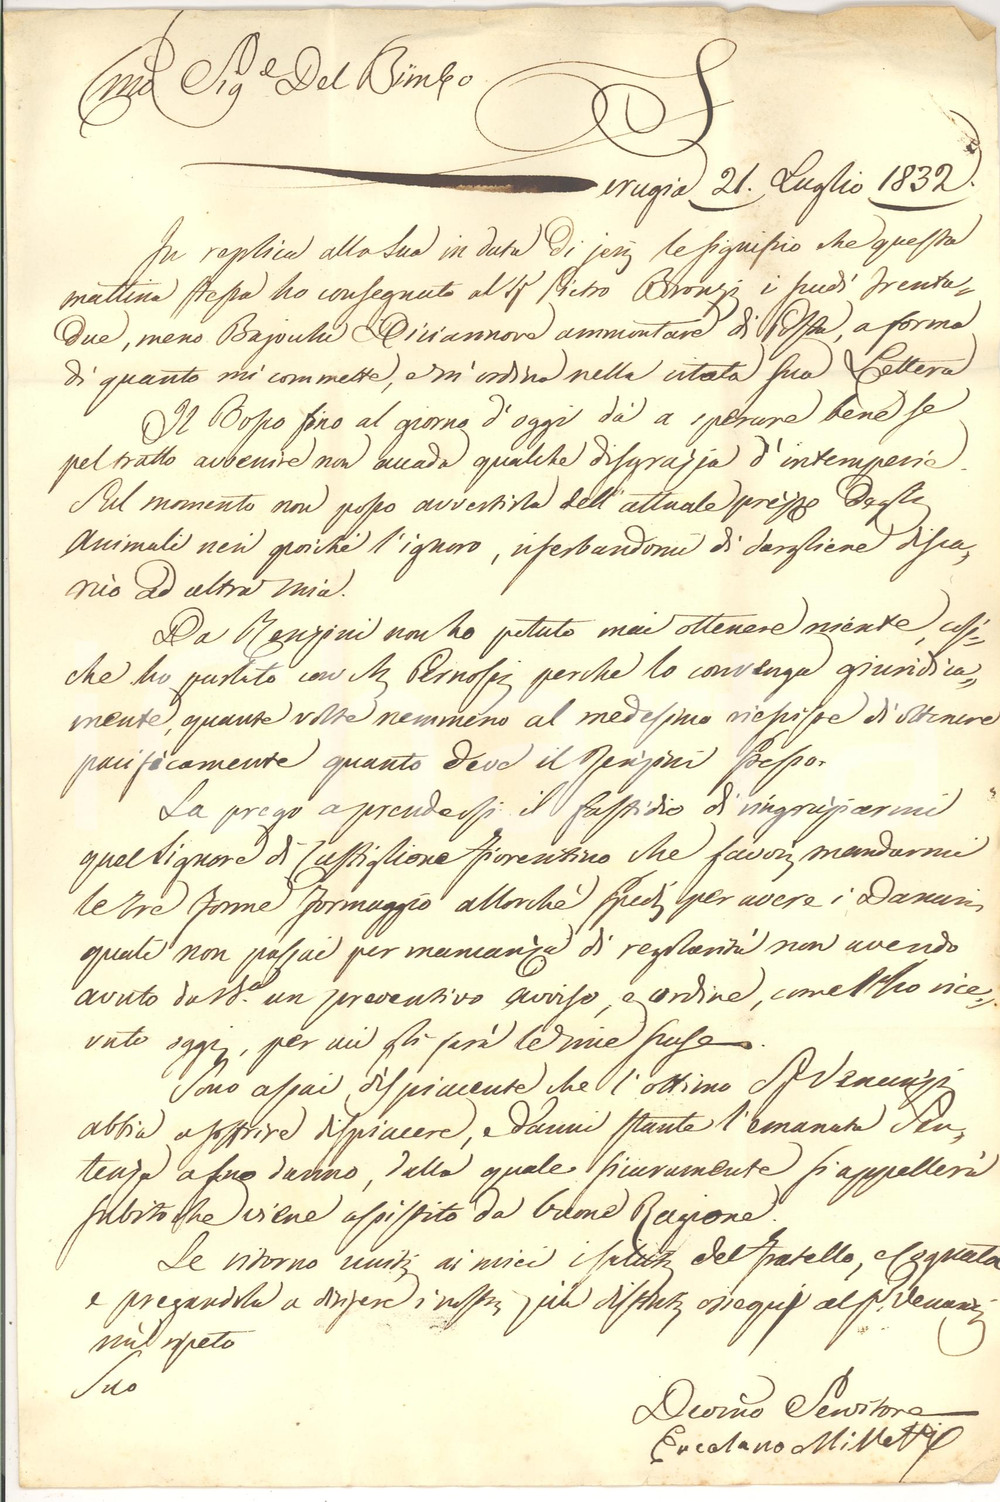 Sig.e Del Bimbo
Perugia 21. Luglio 1832.
In replica alla Sua in data di jeri le significo che questa
mattina stessa ho consegnato al Sr Pietro Bronzi i scudi trenta=
due, meno Bajocchi Diciannove ammontare di Posta, a forma
di quanto mi commette, e m'ordina nella citata sua Lettera
Il Bosco fino al giorno d'oggi dà a sperare bene se
pel tratto avvenire non accada qualche disgrazia d'intemperie.
Sul momento non posso avvertirla dell'attuale prezzo degli
Animali neri poichè l'ignoro, riserbandomi di dargliene disca=
rico ad altra mia.
Da Renzini non ho potuto mai ottenere niente, cosi=
che ho parlato con perche lo convenga giuridica=
mente, quante volte nemmeno al medesimo riescisse di ottenere
pacificamente quanto deve il Renzini stesso.
La prego a prendersi il fastidio di ringraziarmi
quel Signore di Castiglione Fiorentino che favorì mandarmi
le tre forme formaggio allorchè spedì per avere i Danari,
quali non passai per mancanza di regolarità non avendo
avuto da un preventivo avviso, e ordine, come l'ho rice=
vuto oggi, per cui gli farà le mie scuse.
Sono assai dispiacente che l'ottimo Sr Venanzi
abbia a soffrire dispiacere, e danni stante l'emanata Sen=
tenza a suo danno, dalla quale sicuramente si appellerà
subitoche viene assistito da buone Ragione.
Le ritorno uniti ai miei i saluti del fratello, e Cognata
e pregandola a dirigere i nostri più distinti ossequj al Sr Venanzi
mi ripeto
Suo
Devmo Servitore
Ercolano